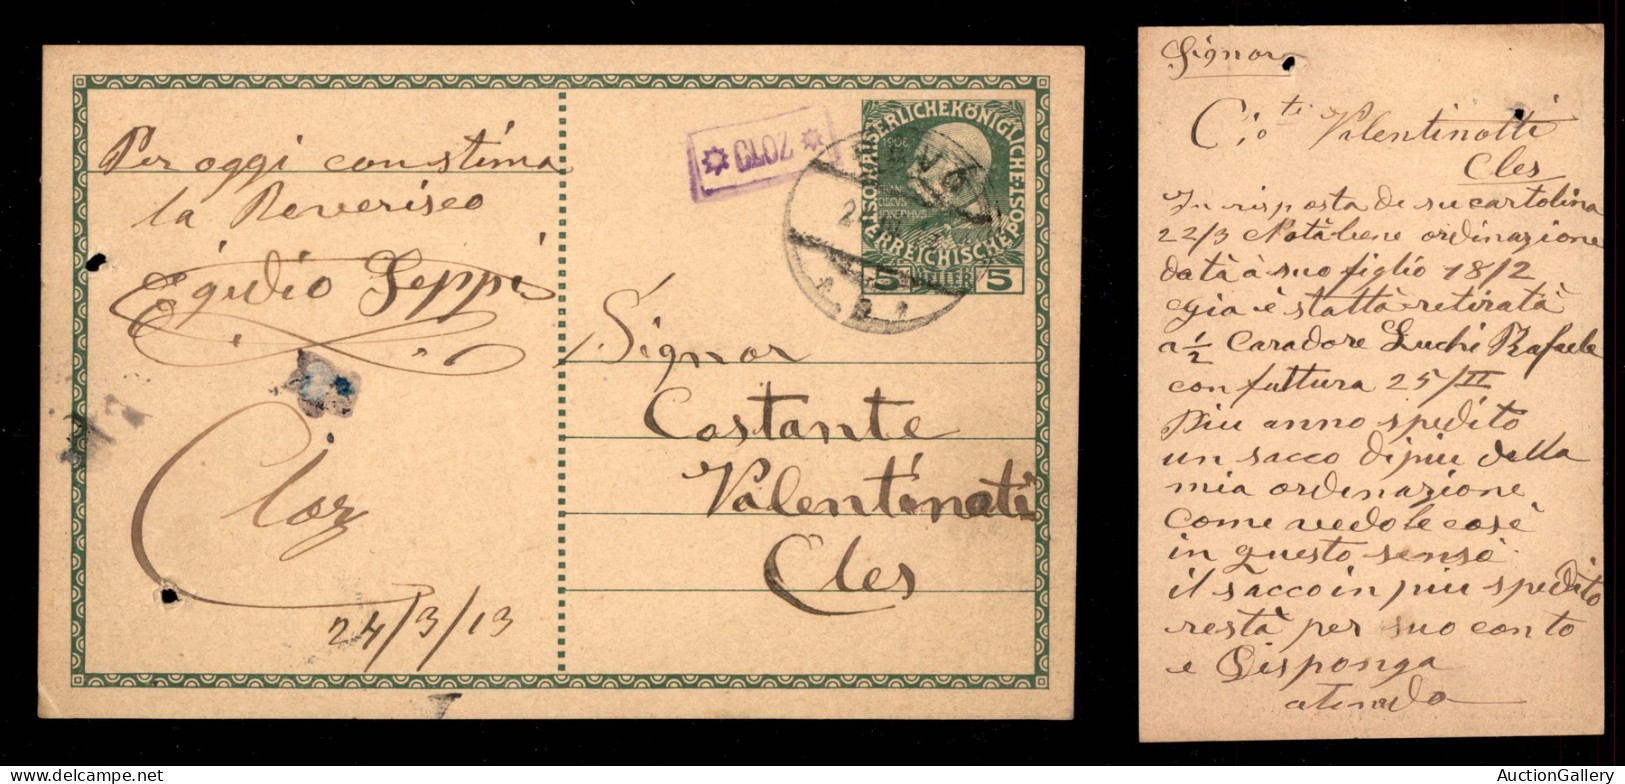 Per oggi con stima
la Reverisco
Egidio Seppi
Cloz
24/3/13
CLOZ
KAISERLICHEKÖNIGLICHE
ÖSTERREICHISCHE POST
1908
FRAN
CISCVS
IOSEPHVS
5 HELLER 5
REVÒ
Signor
Costante
Valentinoti
Cles
Signor
C.o ti Valentinotti
Cles
In risposta de su cartolina
22/3 Notàbene ordinazione
datà à suo figlio 18/2
egia è stattà retiratà
a 1/2 Caradore Luchi Rafaele
con futtura 25/II
Piu anno spedito
un sacco di piu della
mia ordenazione
Come vedo le cose
in questo senso
il sacco in piu spedito
restà per suo conto
e Disponga
AuctionGallery